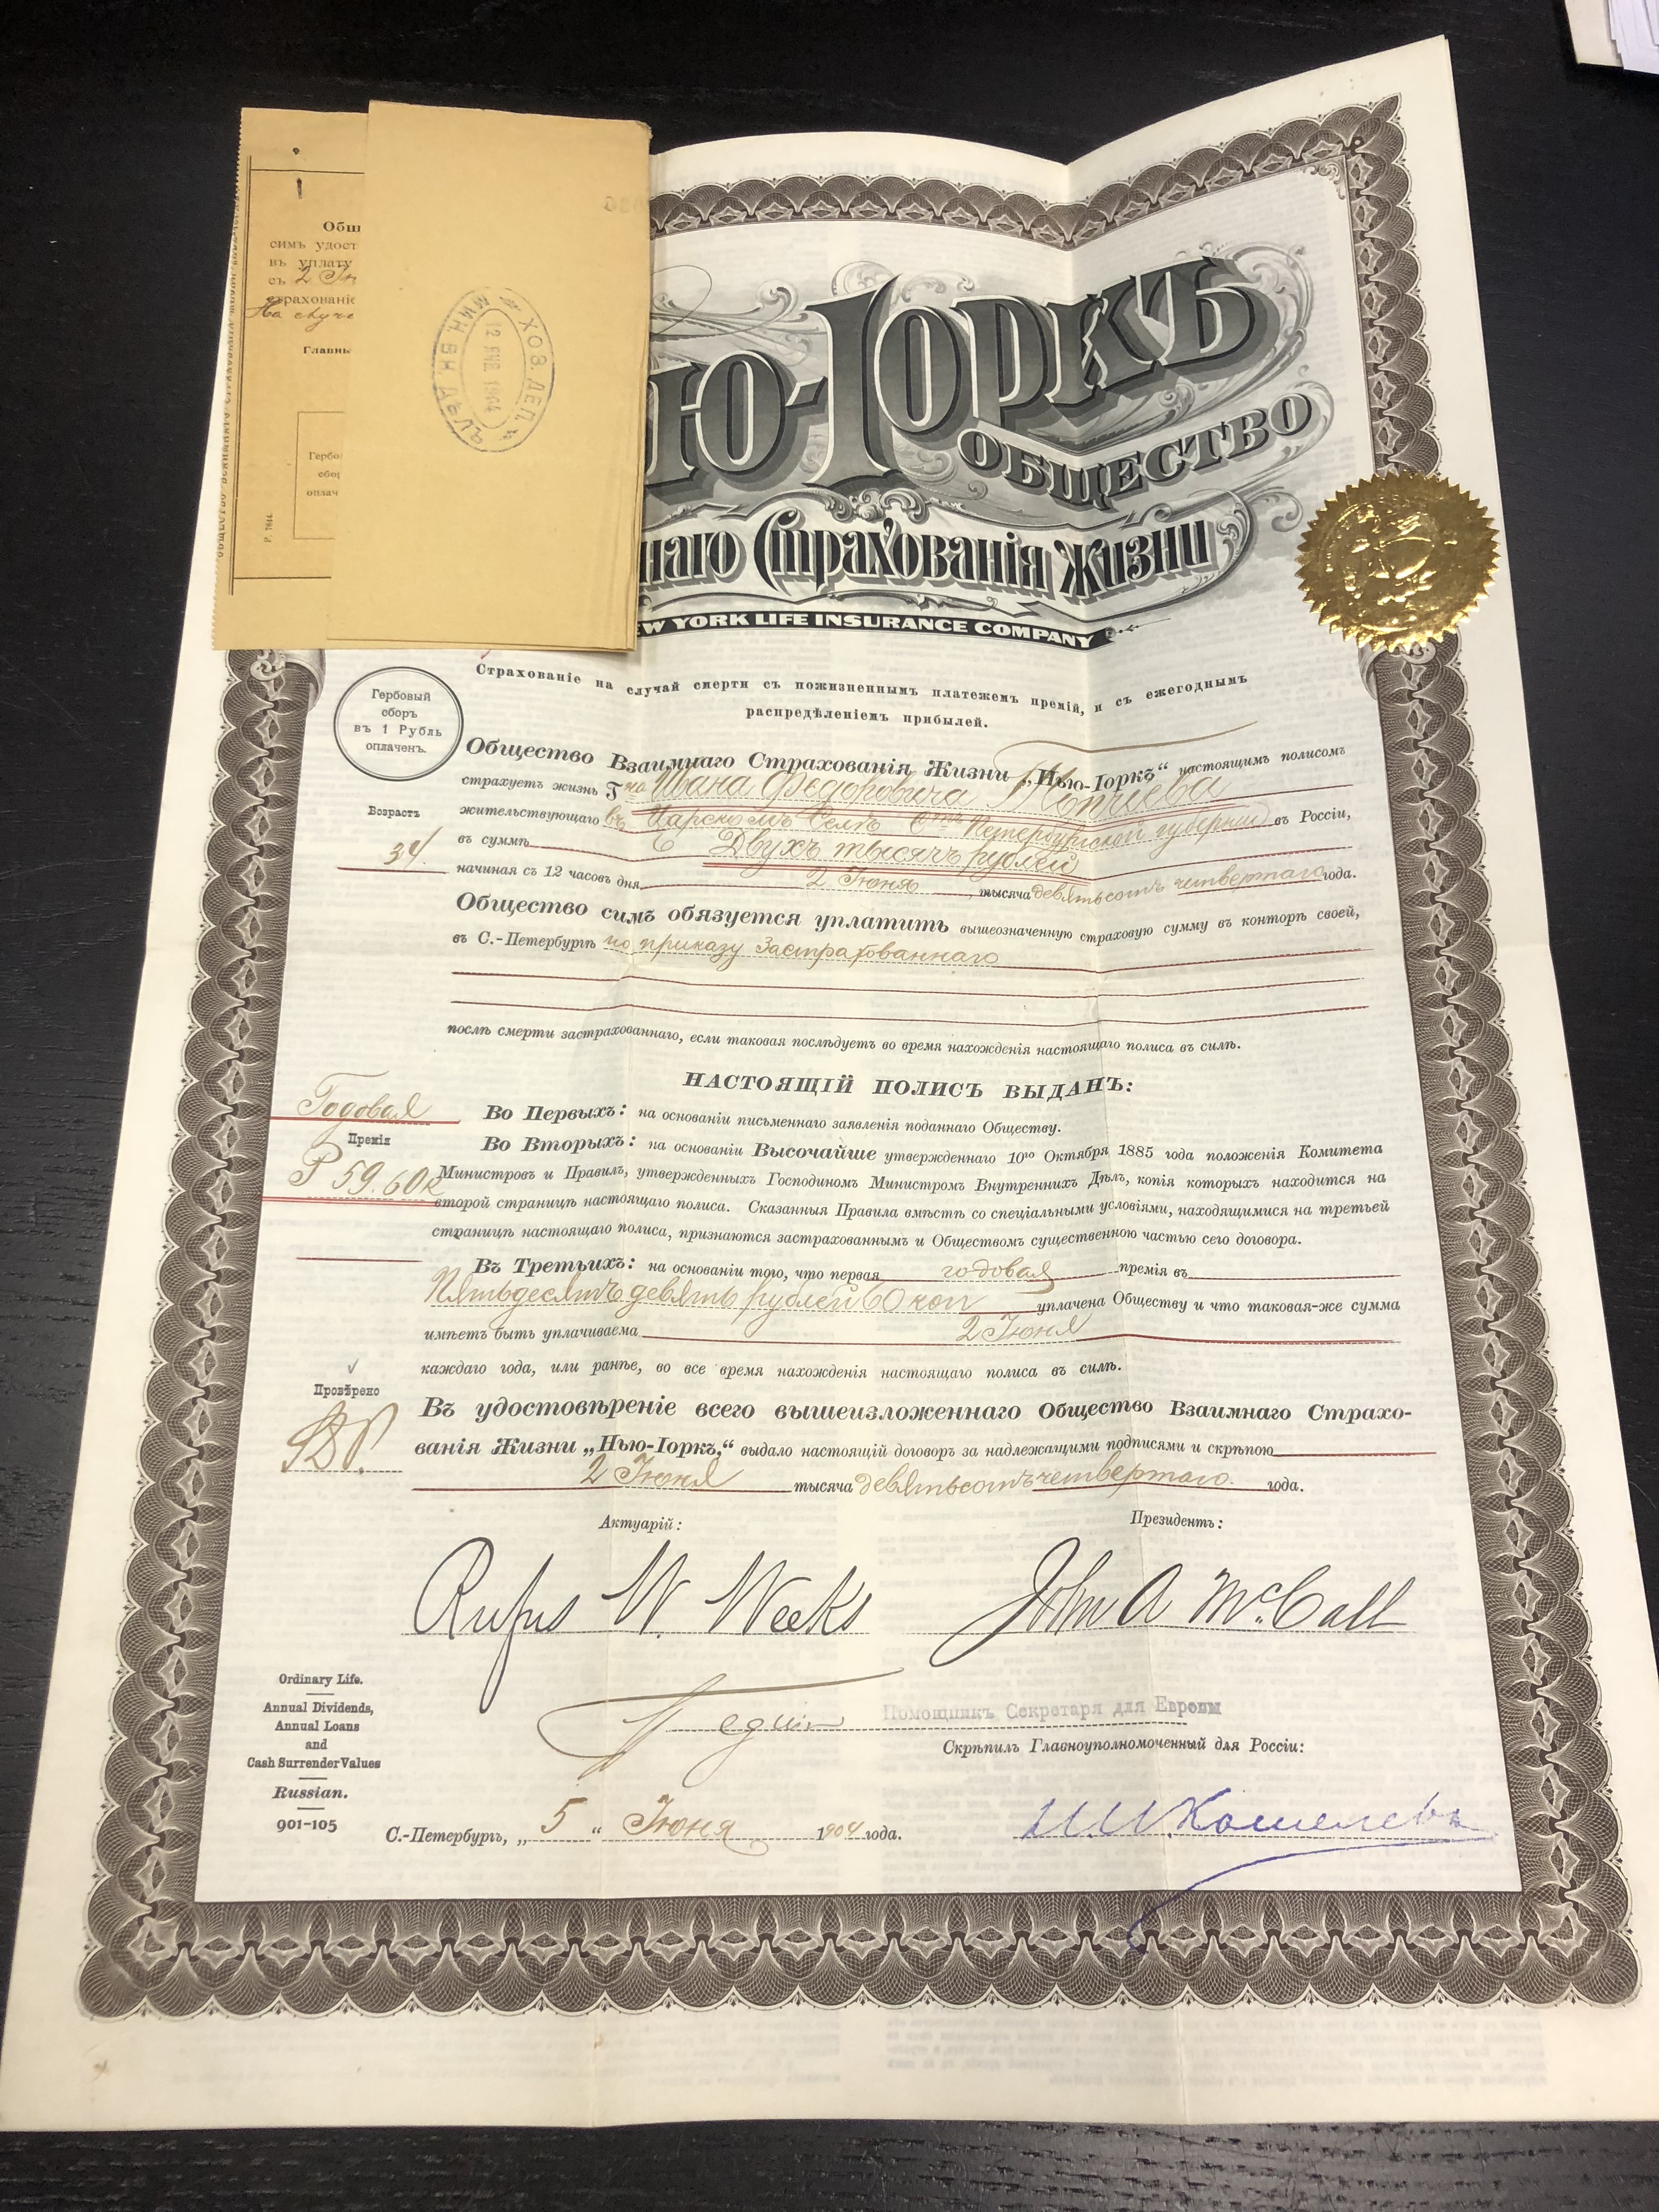 Общ
симъ удост
въ уплату
съ 2 Ін
страхованіе
На случа
Главны
Гербо
сбор
оплач
Р. 7644.
ХОЗ. ДЕП.
12 ЯНВ. 1904
МИН. ВН. ДѢЛЪ
Ю-ІОРКЪ
ОБЩЕСТВО
наго Страхованія Жизни
EW YORK LIFE INSURANCE COMPANY
Страхованіе на случай смерти съ пожизненнымъ платежемъ премій, и съ ежегоднымъ
распредѣленіемъ прибылей.
Гербовый
сборъ
въ 1 Рубль
оплаченъ.
Общество Взаимнаго Страхованія Жизни „Нью-Іоркъ“ настоящимъ полисомъ
страхуетъ жизнь Гна Ивана Федоровича
жительствующаго въ Царскомъ Селѣ Спб Петербургской губерніи въ Россіи,
Возрастъ
34
въ суммѣ Двухъ тысячъ рублей
начиная съ 12 часовъ дня 2 Іюня тысяча девятьсотъ четвертаго года.
Общество симъ обязуется уплатить вышеозначенную страховую сумму въ конторѣ своей,
въ С.-Петербургѣ по приказу Застрахованнаго
послѣ смерти застрахованнаго, если таковая послѣдуетъ во время нахожденія настоящаго полиса въ силѣ.
НАСТОЯЩІЙ ПОЛИСЪ ВЫДАНЪ:
Годовая
Премія
Р 59.60к
Во Первыхъ: на основаніи письменнаго заявленія поданнаго Обществу.
Во Вторыхъ: на основаніи Высочайше утвержденнаго 10го Октября 1885 года положенія Комитета
Министровъ и Правилъ, утвержденныхъ Господиномъ Министромъ Внутреннихъ Дѣлъ, копія которыхъ находится на
второй страницѣ настоящаго полиса. Сказанныя Правила вмѣстѣ со спеціальными условіями, находящимися на третьей
страницѣ настоящаго полиса, признаются застрахованнымъ и Обществомъ существенною частью сего договора.
Въ Третьихъ: на основаніи того, что первая годовая премія въ
Пятьдесятъ девять рублей 60 коп уплачена Обществу и что таковая-же сумма
имѣетъ быть уплачиваема 2 Іюня
каждаго года, или ранѣе, во все время нахожденія настоящаго полиса въ силѣ.
Провѣрено
Въ удостовѣреніе всего вышеизложеннаго Общество Взаимнаго Страхо-
ванія Жизни „Нью-Іоркъ,“ выдало настоящій договоръ за надлежащими подписями и скрѣпою
2 Іюня тысяча девятьсотъ четвертаго года.
Актуарій: Президентъ:
Rufus W. Weeks John A McCall
Помощникъ Секретаря для Европы
Скрѣпилъ Главноуполномоченный для Россіи:
Ordinary Life.
Annual Dividends,
Annual Loans
and
Cash Surrender Values
Russian.
901-105
С.-Петербургъ, „5“ Іюня 1904 года.